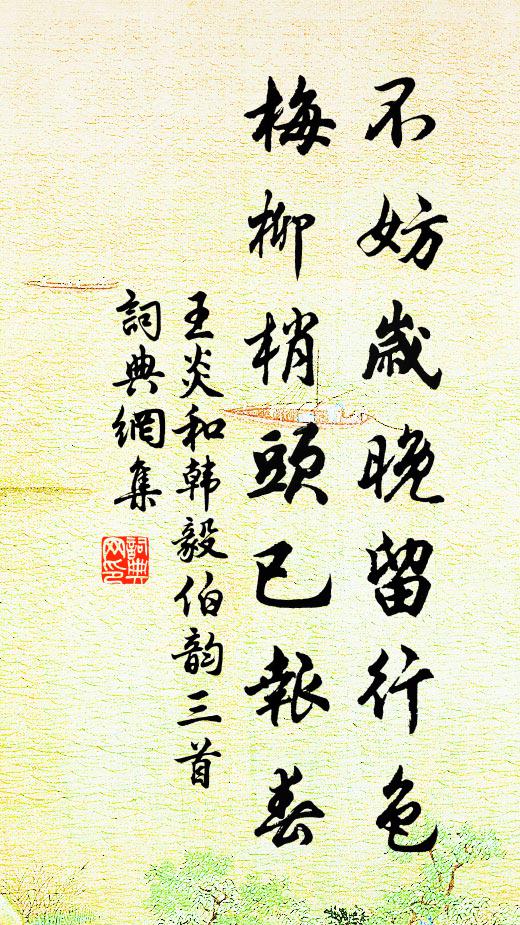 不妨歲晚留行色
梅柳梢頭已報春
王炎和韩毅伯韵三首
詞典網集
詞典网印